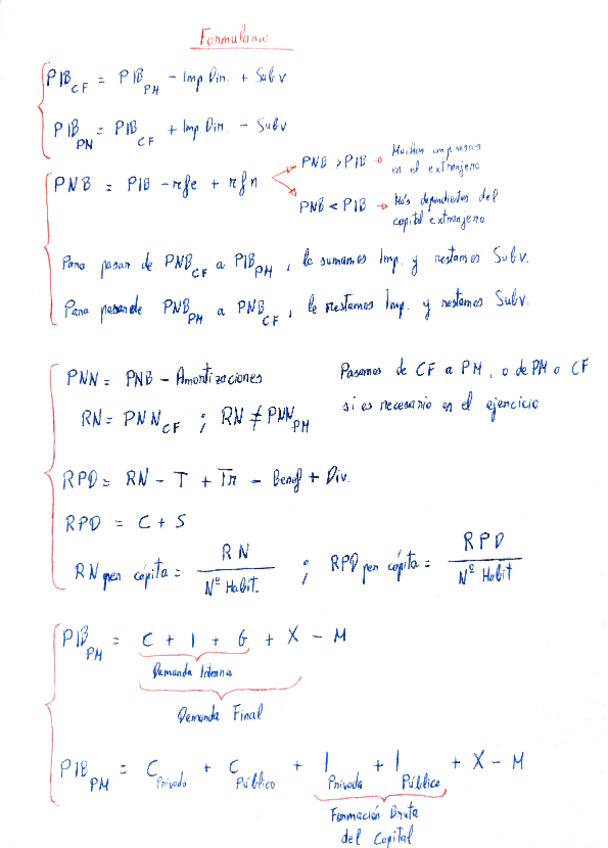 Formulario
PIB_CF = PIB_PM - Imp Din. + Subv
PIB_PN = PIB_CF + Imp Din. - Subv
PNB = PIB - rfe + rfn
PNB > PIB → Muchas empresas
en el extranjero
PNB < PIB → Más dependientes del
capital extranjero
Para pasar de PNB_CF a PIB_PM, le sumamos Imp. y restamos Subv.
Para pasar de PNB_PM a PNB_CF, le restamos Imp. y restamos Subv.
PNN = PNB - Amortizaciones
Pasamos de CF a PM, o de PM a CF
si es necesario en el ejercicio
RN = PNN_CF ; RN ≠ PNN_PM
RPD = RN - T + Tr - Benef + Div.
RPD = C + S
RN per cápita = RN / Nº Habit. ; RPD per cápita = RPD / Nº Habit
PIB_PM = C + I + G + X - M
Demanda Interna
Demanda Final
PIB_PM = C_Privado + C_Público + I_Privada + I_Pública + X - M
Formación Bruta
del Capital